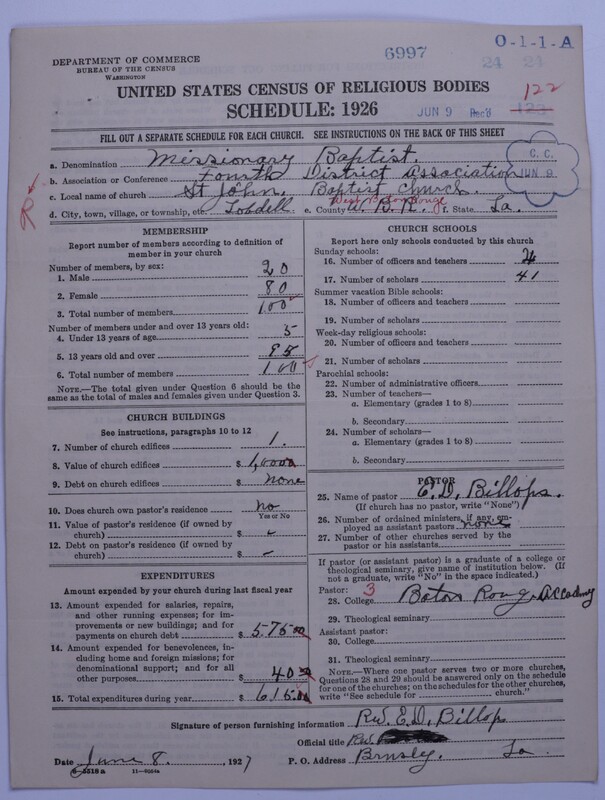 6997
O-1-1-A
24 24
DEPARTMENT OF COMMERCE
BUREAU OF THE CENSUS
WASHINGTON
UNITED STATES CENSUS OF RELIGIOUS BODIES
122
SCHEDULE: 1926
JUN 9
123
FILL OUT A SEPARATE SCHEDULE FOR EACH CHURCH. SEE INSTRUCTIONS ON THE BACK OF THIS SHEET
C. C.
JUN 9
a. Denomination Missionary Baptist.
b. Association or Conference Fourth District Association
c. Local name of church St John. Baptist Church.
West Baton Rouge
d. City, town, village, or township, etc. Lobdell e. County W. B. R. f. State La.
MEMBERSHIP
Report number of members according to definition of member in your church
Number of members, by sex:
1. Male 20
2. Female 80
3. Total number of members 100
Number of members under and over 13 years old:
4. Under 13 years of age 5
5. 13 years old and over 95
6. Total number of members 100
NOTE.—The total given under Question 6 should be the same as the total of males and females given under Question 3.
CHURCH BUILDINGS
See instructions, paragraphs 10 to 12
7. Number of church edifices 1.
8. Value of church edifices $
9. Debt on church edifices $ none
10. Does church own pastor's residence no
Yes or No
11. Value of pastor's residence (if owned by church) $
12. Debt on pastor's residence (if owned by church) $
EXPENDITURES
Amount expended by your church during last fiscal year
13. Amount expended for salaries, repairs, and other running expenses; for improvements or new buildings; and for payments on church debt $ 575.00
14. Amount expended for benevolences, including home and foreign missions; for denominational support; and for all other purposes $ 40.00
15. Total expenditures during year $ 615.00
CHURCH SCHOOLS
Report here only schools conducted by this church
Sunday schools:
16. Number of officers and teachers
17. Number of scholars 41
Summer vacation Bible schools:
18. Number of officers and teachers
19. Number of scholars
Week-day religious schools:
20. Number of officers and teachers
21. Number of scholars
Parochial schools:
22. Number of administrative officers
23. Number of teachers—
a. Elementary (grades 1 to 8)
b. Secondary
24. Number of scholars—
a. Elementary (grades 1 to 8)
b. Secondary
PASTOR
25. Name of pastor E. D. Billops.
(If church has no pastor, write "None")
26. Number of ordained ministers, if any, employed as assistant pastors none
27. Number of other churches served by the pastor or his assistants
If pastor (or assistant pastor) is a graduate of a college or theological seminary, give name of institution below. (If not a graduate, write "No" in the space indicated.)
Pastor: 3
28. College Baton Roug. Accademy
29. Theological seminary
Assistant pastor:
30. College
31. Theological seminary
NOTE.—Where one pastor serves two or more churches, Questions 28 and 29 should be answered only on the schedule for one of the churches; on the schedules for the other churches, write "See schedule for church."
Signature of person furnishing information Rev. E. D. Billops
Official title Rev.
Date June 8, 1927 P. O. Address Brusley. La.
8-5518 a 11-9024a